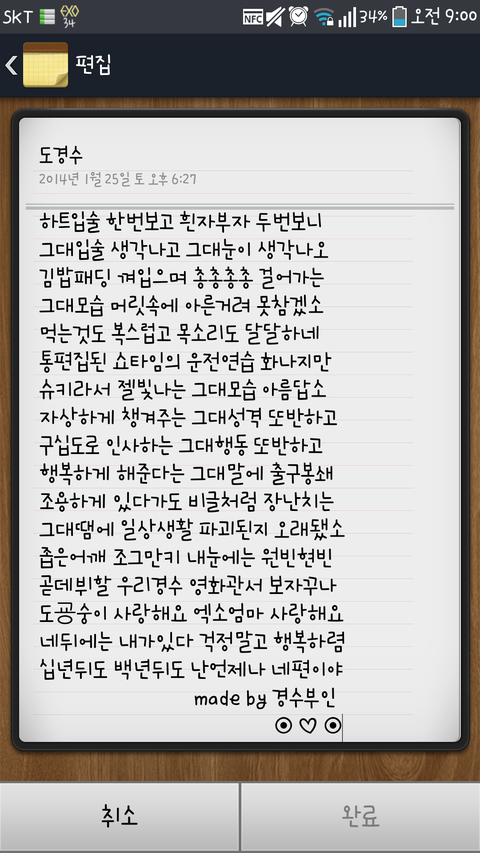 SKT EXO 34 NFC 34% 오전 9:00
편집
도경수
2014년 1월 25일 토 오후 6:27
하트입술 한번보고 흰자부자 두번보니
그대입술 생각나고 그대눈이 생각나오
김밥패딩 껴입으며 총총총총 걸어가는
그대모습 머릿속에 아른거려 못참겠소
먹는것도 복스럽고 목소리도 달달하네
통편집된 쇼타임의 운전연습 화나지만
슈키라서 젤빛나는 그대모습 아름답소
자상하게 챙겨주는 그대성격 또반하고
구십도로 인사하는 그대행동 또반하고
행복하게 해준다는 그대말에 출구봉쇄
조용하게 있다가도 비글처럼 장난치는
그대땜에 일상생활 파괴된지 오래됐소
좁은어깨 조그만키 내눈에는 원빈현빈
곧데뷔할 우리경수 영화관서 보자꾸나
도굥숭이 사랑해요 엑소엄마 사랑해요
네뒤에는 내가있다 걱정말고 행복하렴
십년뒤도 백년뒤도 난언제나 네편이야
made by 경수부인
⊙♡⊙
취소 완료